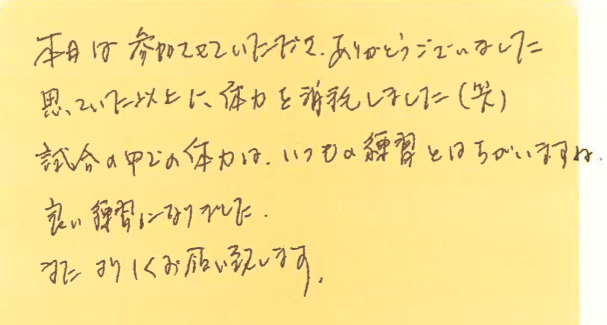 本日は参加させていただき、ありがとうございました
思っていた以上に、体力を消耗しました(笑)
試合の中での体力は、いつもの練習とはちがいますね.
良い練習になりました.
また よろしくお願い致します.